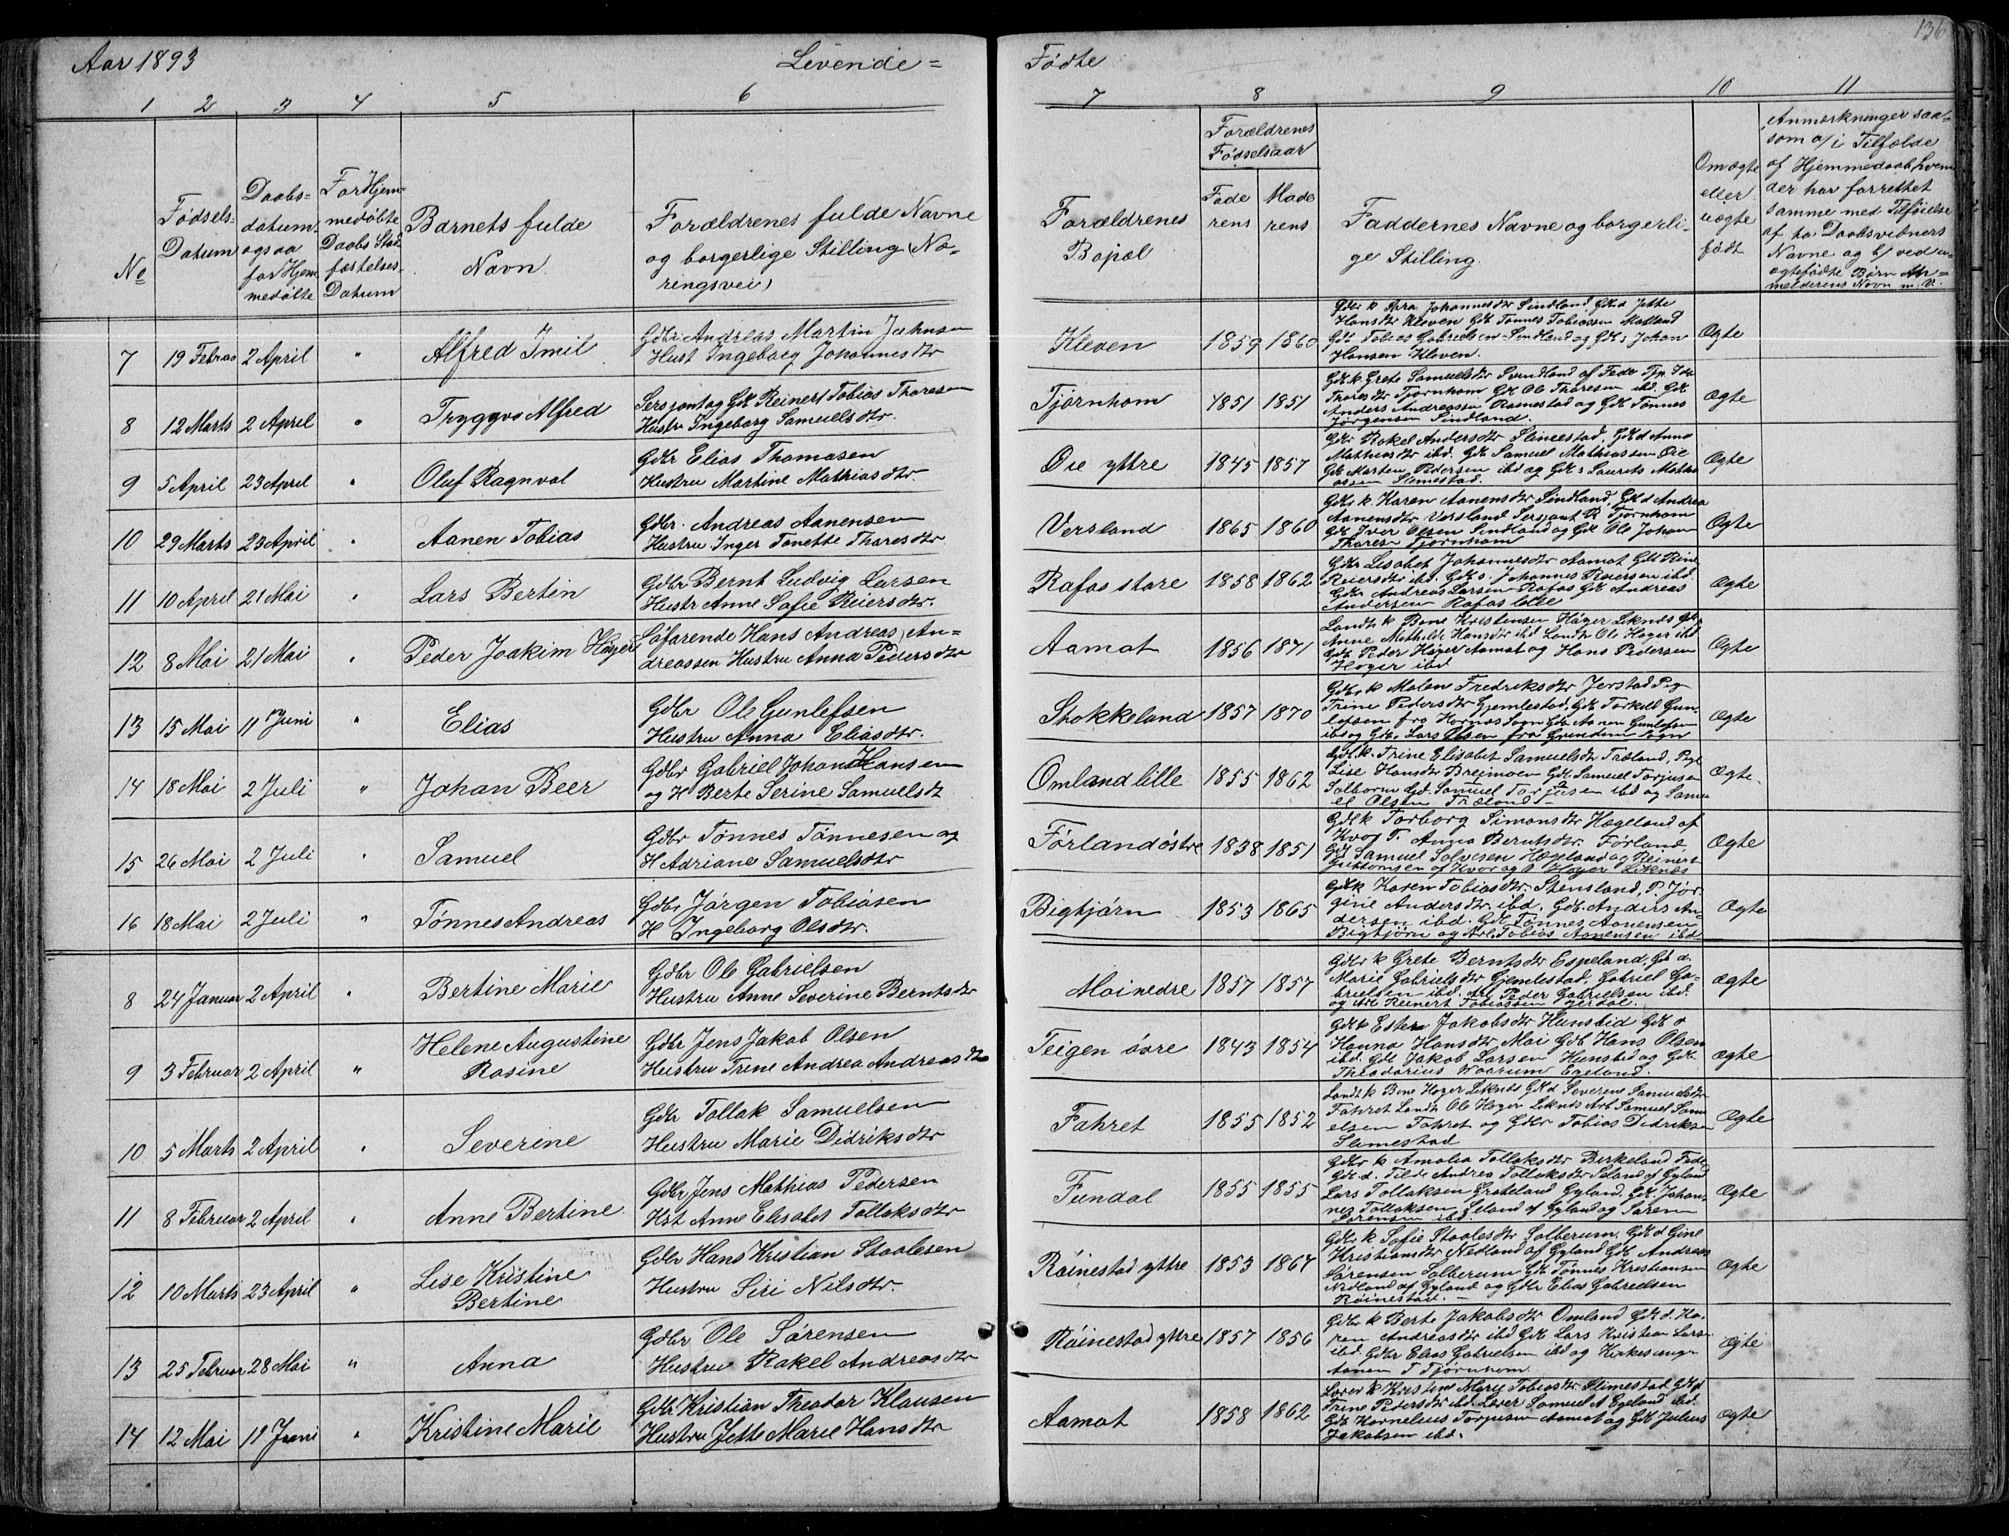 136
Aar 1893 Levende= Fødte
1 2 3 4 5 6 7 8 9 10 11
No
Fødsels-
Datum
Daabs-
datum
ogsaa
for Hjem
medøbte
For Hjem-
medøbte
Daabs Stad
fæstelses-
Datum
Barnets fulde
Navn
Forældrenes fulde Navne
og borgerlige Stilling (Næ-
ringsvei)
Forældrenes
Bopæl
Forældrenes
Fødselsaar
Fade
rens
Mode
rens
Faddernes Navne og borgerli-
ge Stilling.
Om ægte
eller
uægte
født
Anmærkninger saa-
som a/ i Tilfælde
af Hjemmedaab hvem
der har forrettet
samme med Tilføielse
af to Daabsvidners
Navne og b/ ved u-
ægtefødte Børn An-
melderens Navn m. v.
7 19 Februar 2 April " Alfred Imil
Gdbr Andreas Martin Jahnsen
Hust Ingeborg Johannesdtr
Kleven 1859 1860
Gdbr k Sara Johannesdtr Sindland Gkd Jette
Hansdtr Kleven Gdb Tønnes Tobiassen
Gdb Tobias Gabrielsen Sindland og Gk s Johan
Hansen Kleven.
Ægte
8 12 Marts 2 April " Tryggve Alfred
Sersjant og Gdb Reinert Tobias Thoresen
Hustr Ingeborg Samuelsdtr.
Tjørnhom 1851 1851
Gdb k. Grete Samuelsdtr Sindland af Fede
Tjørnhom Gdb Ole Thoresen ibd. Gdb
Anders Andreassen Ramestad og Gdb Tønnes
Jørgensen Sindland
Ægte
9 5 April 23 April " Oluf Ragnval
Gdbr Elias Thomasen
Hustru Martine Mathiasdtr.
Øie yttre 1845 1857
Gdbr Rakel Andersdtr Slimestad, Gkd Anna
Mathiasdtr ibd. Gdb Samuel Mathiassen Øie
Gdb Marten Pedersen ibd og Gk s Laurits Mathi
assen Slimestad.
Ægte
10 29 Marts 23 April " Aanen Tobias
Gdbr. Andreas Aanensen
Hustru Inger Tonette Thoresdtr
Versland 1865 1860
Gdbr k Karen Aanensdtr Sindland, Gk d Andrea
Aanensdtr Versland Sersjant R Tjørnhom
Gdb Iver Olsen Sindland og Gdb Ole Johan
Thoresen Tjørnhom
Ægte
11 10 April 21 Mai " Lars Bertin
Gdbr Bernt Ludvig Larsen
Hustr Anne Sofie Reiersdtr.
Rafos store 1858 1862
Gdbr Lisabet Johannesdtr Aamot
Reiersdtr ibd. Gdb s. Johannes Reiersen ibd.
Gdbr Andreas Larsen Rafos Gdb Andreas
Andersen Rafos lille
Ægte
12 8 Mai 21 Mai " Peder Joakim Høyer
Søfarende Hans Andreas An-
dreassen Hustru Anna Pedersdtr
Aamot 1856 1871
Landh k Bene Kristensen Høyer Liknes
Anne Mathilde Hansdtr ibd Landh Ole Høyer ibd
Gdb Peder Høyer Aamot og Hans Pedersen
Høyer ibd
Ægte
13 15 Mai 11 Juni " Elias
Gdbr Ole Gunlefsen
Hustru Anna Eliasdtr.
Stokkeland 1857 1870
Gdbr k Malene Fredriksdtr Jerstad Pig
Trine Pedersdtr Gjemlestad, Gdb Torkell Gun-
lefsen fra Hornes Sogn Gdb Aanen Gunlefsen
ibd og Gdb. Lars Olsen fra Grindem Sogn
Ægte
14 18 Mai 2 Juli " Johan Beer
Gdbr Gabriel Johan Hansen
og H Berte Serine Samuelsdt
Omland lille 1855 1862
Gdbk. Trine Elisabet Samuelsdtr Træland, Pige
Lise Hansdtr Breimoen Gdb Samuel Torjusen
Solborm Gd. Samuel Torjusen ibd og Samu
el Olsen Træland –
Ægte
15 26 Mai 2 Juli " Samuel
Gdbr Tønnes Tønnesen og
H Adriane Samuelsdtr
Førland østre 1838 1851
Gdbk Torborg Simonsdtr Hægeland af
Kvas P. Anna Berntsdtr. Førland,
Gdb Samuel Salvesen Hægeland og Reinert
af Kvas og O Høyer Liknes
Ægte
16 18 Mai 2 Juli " Tønnes Andreas
Gdbr Jørgen Tobiasen
H Ingeborg Olsdtr.
Bigtjørn 1853 1865
Gdbk Karen Tobiasdtr. Stensland, P. Jør-
gine Andersdtr. ibd. Gdb. Anders An-
dersen ibd. Gdb Tønnes Aanensen
Bigtjørn og Arb. Tobias Aanensen ibd
Ægte
8 24 Januar 2 April " Bertine Marie
Gdbr Ole Gabrielsen
Hustru Anne Severine Berntsdtr
Moi nedre 1857 1857
Gdbr k Grete Berntsdtr Espeland, Gk d.
Marie Gabrielsdtr Gjemlestad, Gabriel Ga-
brielsen ibd. Arb Peder Gabrielsen ibd.
og Arb Reinert Tobiassen Jerdal.
Ægte
9 3 Februar 2 April " Helene Augustine
Rasine
Gdbr Jens Jakob Olsen
Hustru Trene Andrea Andreasdtr
Teigen øvre 1843 1854
Gdbk Ester Jakobsdtr Hunstid Gk d
Hanna Hansdtr Moi Gdb Hans Olsen
ibd. Gdb Jakob Larsen Hunstad og Gdb
Theodorius Waarum Egeland.
Ægte
10 5 Marts 2 April " Severine
Gdbr Tollak Samuelsen
Hustru Marie Didriksdtr
Fahret 1855 1852
Landh k Bene Høyer Liknes Gkd Severine Samuelsdtr
Fahret Landh Ole Høyer Liknes Arb Samuel Samu
elsen Fahret og Gdbr Tobias Didriksen
Slimestad
Ægte
11 8 Februar 2 April " Anne Bertine
Gdbr Jens Mathias Pedersen
Hst Anne Elisabet Tollaksdtr
Fundal 1855 1855
Gdbr k Amalia Tollaksdtr Birkeland Fede
Gk d. Tilde Andrea Tollaksdtr Seland af Gyland
Lars Tollaksen Grøteland Gyland. Gdb. Johan-
nes Tollaksen Seland af Gyland og Søren
Sørensen ibd.
Ægte
12 10 Marts 23 April " Lise Kristine
Bertine
Gdbr Hans Kristian Staalesen
Hustru Siri Nilsdtr.
Røinestad yttre 1853 1864
Gdbr. k Sofie Staalesdtr Solberum. Gk d Gine
Kristiansdtr Nedland af Gyland Gdb Andreas
Sørensen Solberum Gdb Tønnes Kristiansen
Nedland af Gyland og Gdbr Elias Gabrielsen
Røinestad. –
Ægte
13 25 Februar 28 Mai " Anna
Gdbr Ole Sørensen
Hustru Rakel Andreasdtr
Røinestad yttre 1857 1856
Gdbr k Berte Jakobsdtr Omland Gk d. Ka-
ren Andreasdtr ibd Gdb Lars Kristian Larsen
ibd. Gdbr Elias Gabrielsen ibd og Kirkesanger
Aanen T Tjørnhom
Ægte
14 12 Mai 11 Juni " Kristine Marie
Gdbr Kristian Theodor Klausen
Hustru Jette Marie Hansdtr
Aamot 1858 1862
Lærer k Kristine Mary Tobiasdtr Slimestad Gk d
Trine Pedersdtr ibd. Lærer Samuel A Egeland ibd.
Gdb Kornelius Torjusen Aamot og Gdb Julius
Jakobsen ibd.
Ægte